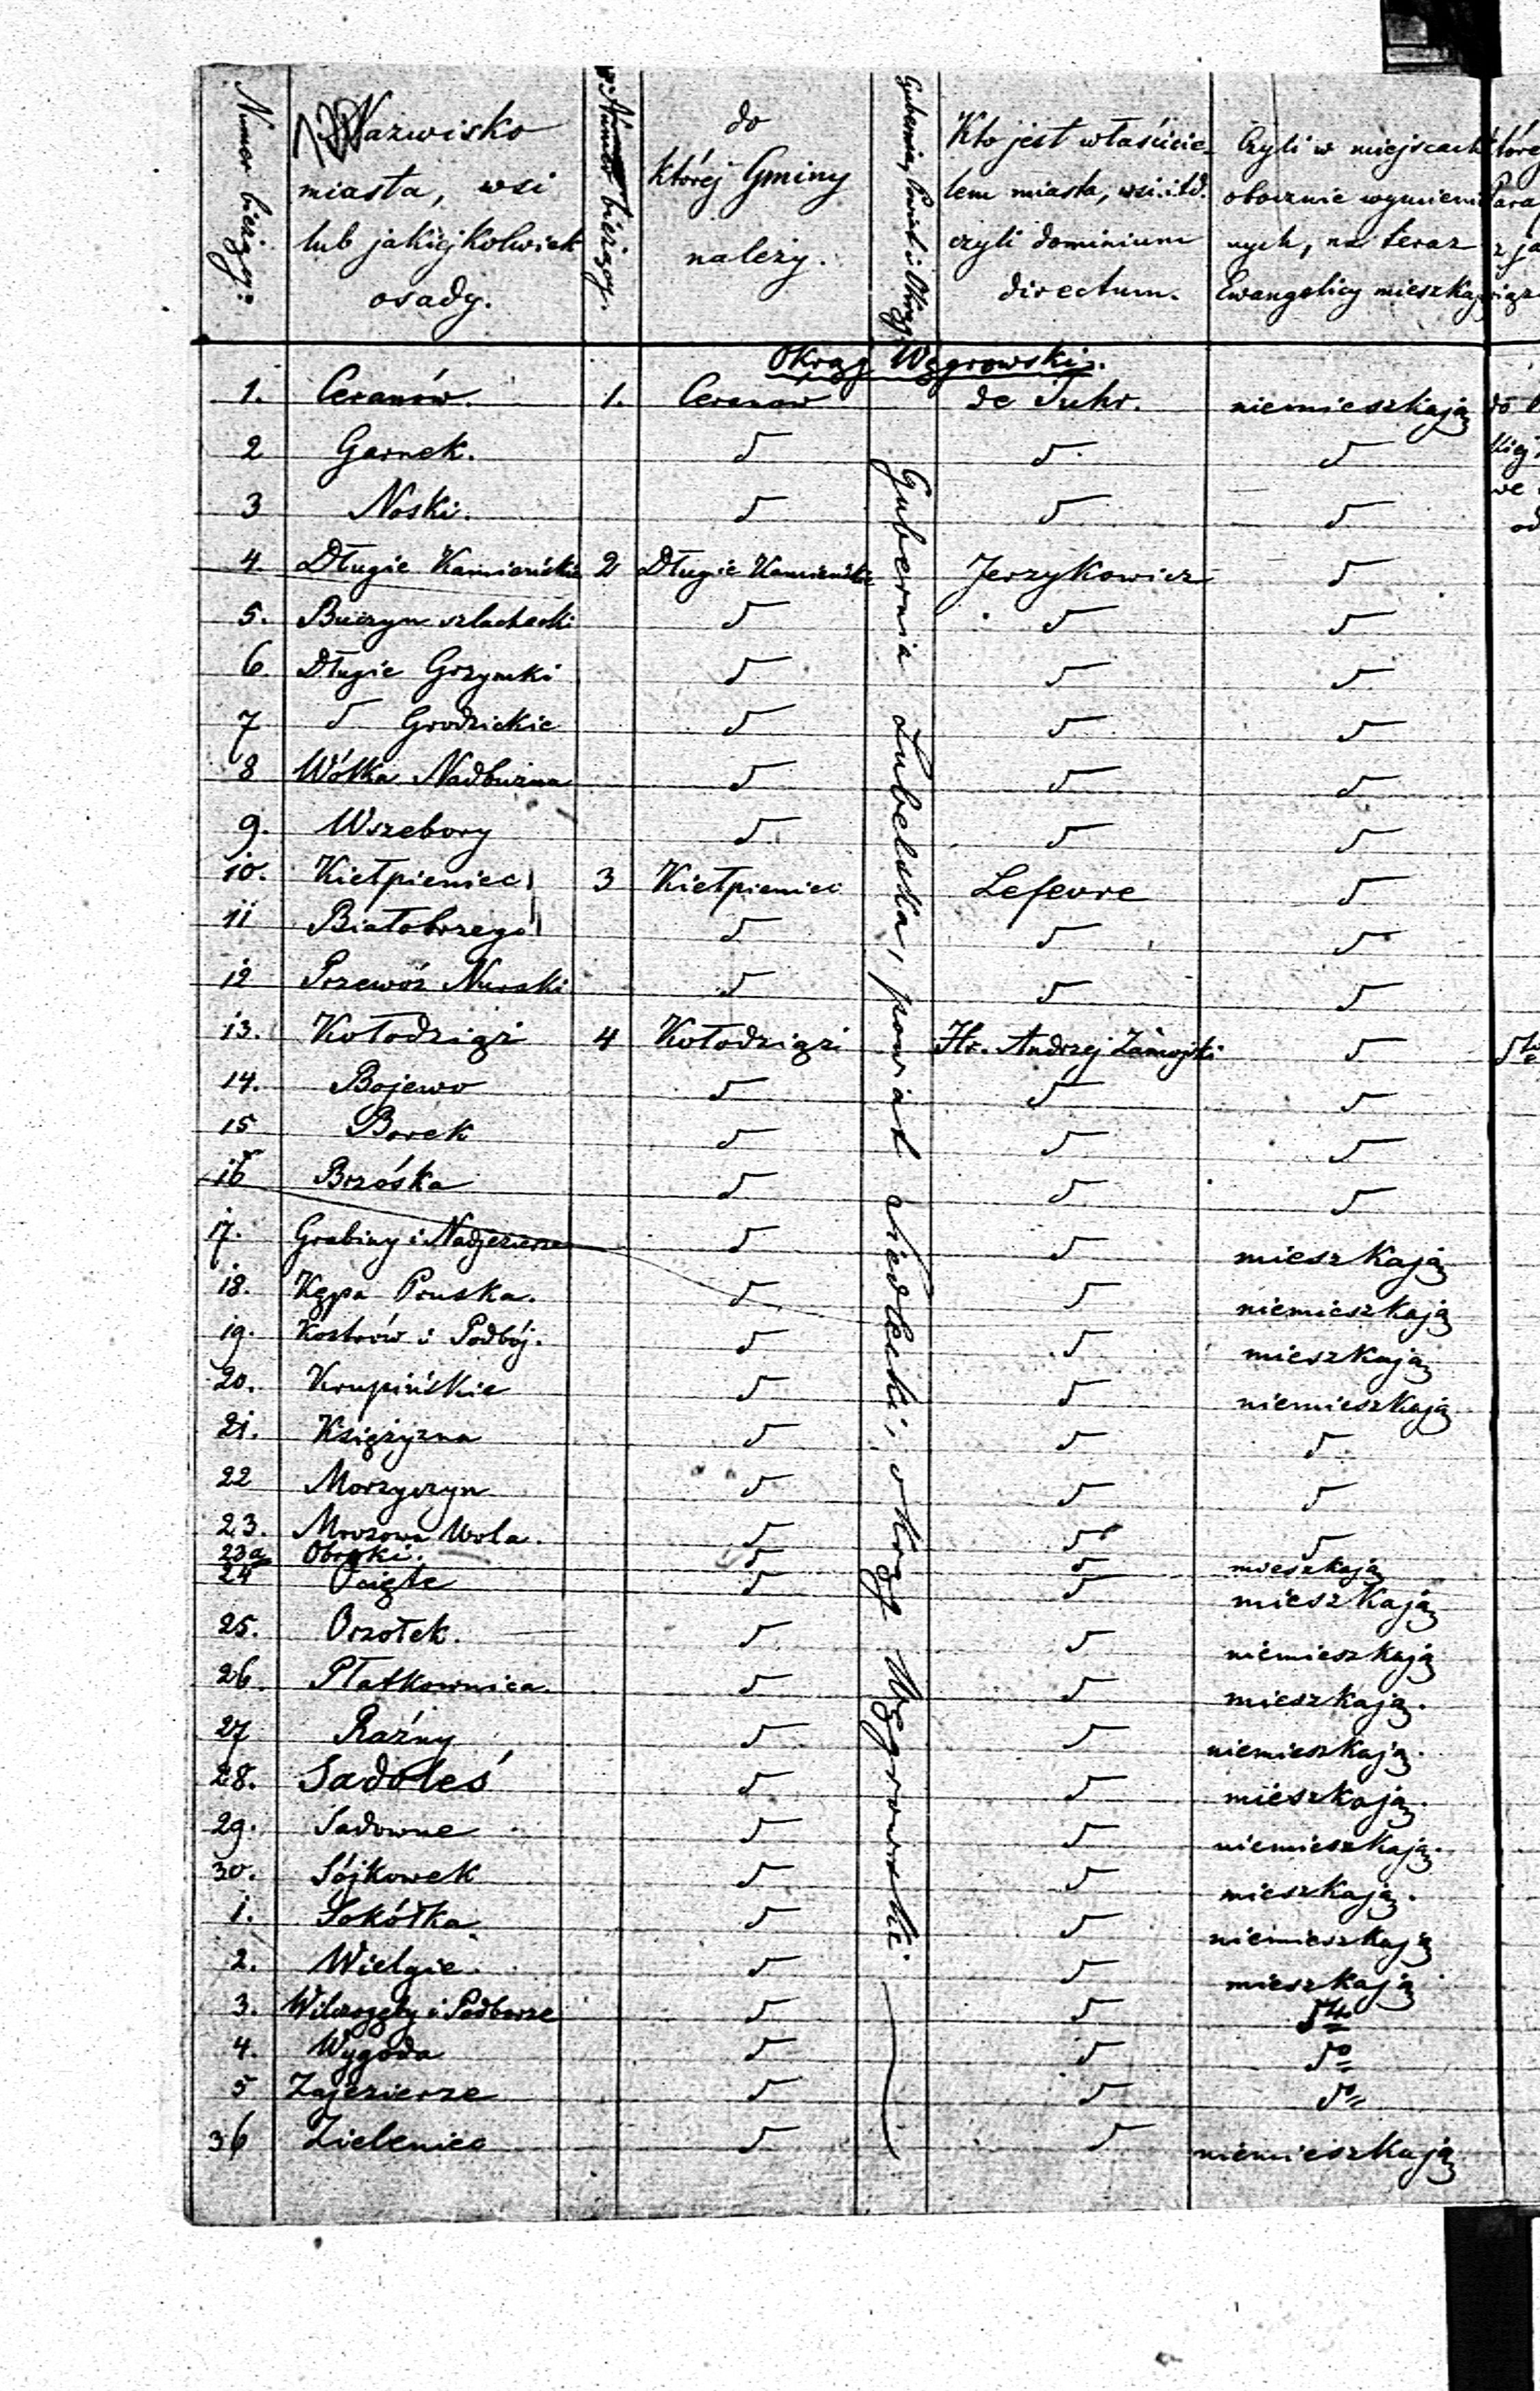 Numer bieżący.
Nazwisko
miasta, wsi
lub jakiejkolwiek
osady.
Numer bieżący.
do
której Gminy
należy.
Gubernia, Powiat i Okrąg.
Kto jest właścicie-
lem miasta, wsi i t.d.
czyli dominium
directum.
Czyli w miejscach
obocznie wymienio
nych, na teraz
Ewangelicy mieszkają
Okrąg Węgrowski.
1. Ceranów. 1. Ceranow de Suhr. niemieszkają
2 Garnek. d d d
3 Noski. d d d
4 Długie Kamieńskie 2 Długie Kamieńskie Jerzykowicz d
5. Buczyn szlachecki d d d
6. Długie Grzymki d d d
7 d Grodzickie d d d
8 Wólka Nadbużna d d d
9. Wszebory d d d
10. Kiełpieniec 3 Kiełpieniec Lefevre d
11 Białobrzegi d d d
12 Przewóz Nurski d d d
13. Kołodziąż 4 Kołodziąż Hr. Andrzej Zamojski d
14. Bojewo d d d
15 Borek d d d
16 Brzóska d d d
17. Grabiny i Nadjeziorze d d mieszkają
18. Kępa Pruska. d d niemieszkają
19. Kostrów i Podbój. d d mieszkają
20. Krupińskie d d niemieszkają
21. Księżyzna d d d
22 Morzyczyn d d d
23. Mrozowa Wola. d d d
23a Obrąki. d d mieszkają
24 Ocięte d d mieszkają
25. Orzołek. d d niemieszkają
26. Płatkownica. d d mieszkają.
27 Raźny d d niemieszkają.
28. Sadoleś d d mieszkają.
29. Sadowne d d niemieszkają.
30. Sójkowek d d mieszkają.
1. Sokółka d d niemieszkają
2. Wielgie. d d mieszkają
3. Wilczogęby i Podborze d d dto
4. Wygoda d d do
5 Zajezierze d d do
36 Zieleniec d d niemieszkają
Gubernia Lubelska, powiat siedlecki, okrąg Węgrowski.